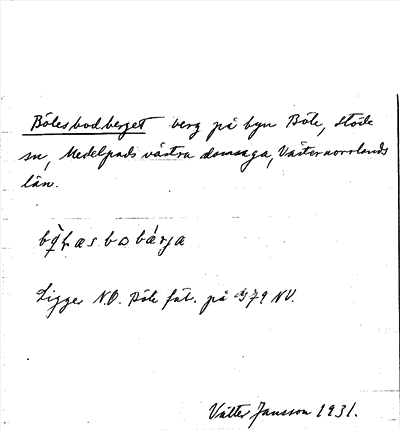 Bölesbodberget berg på byn Böle, Stöde
sn, Medelpads västra domsaga, Västernorrlands
län.
Ligger N.O. Böle fäb. på 79 NV.
Valter Jansson 1931.